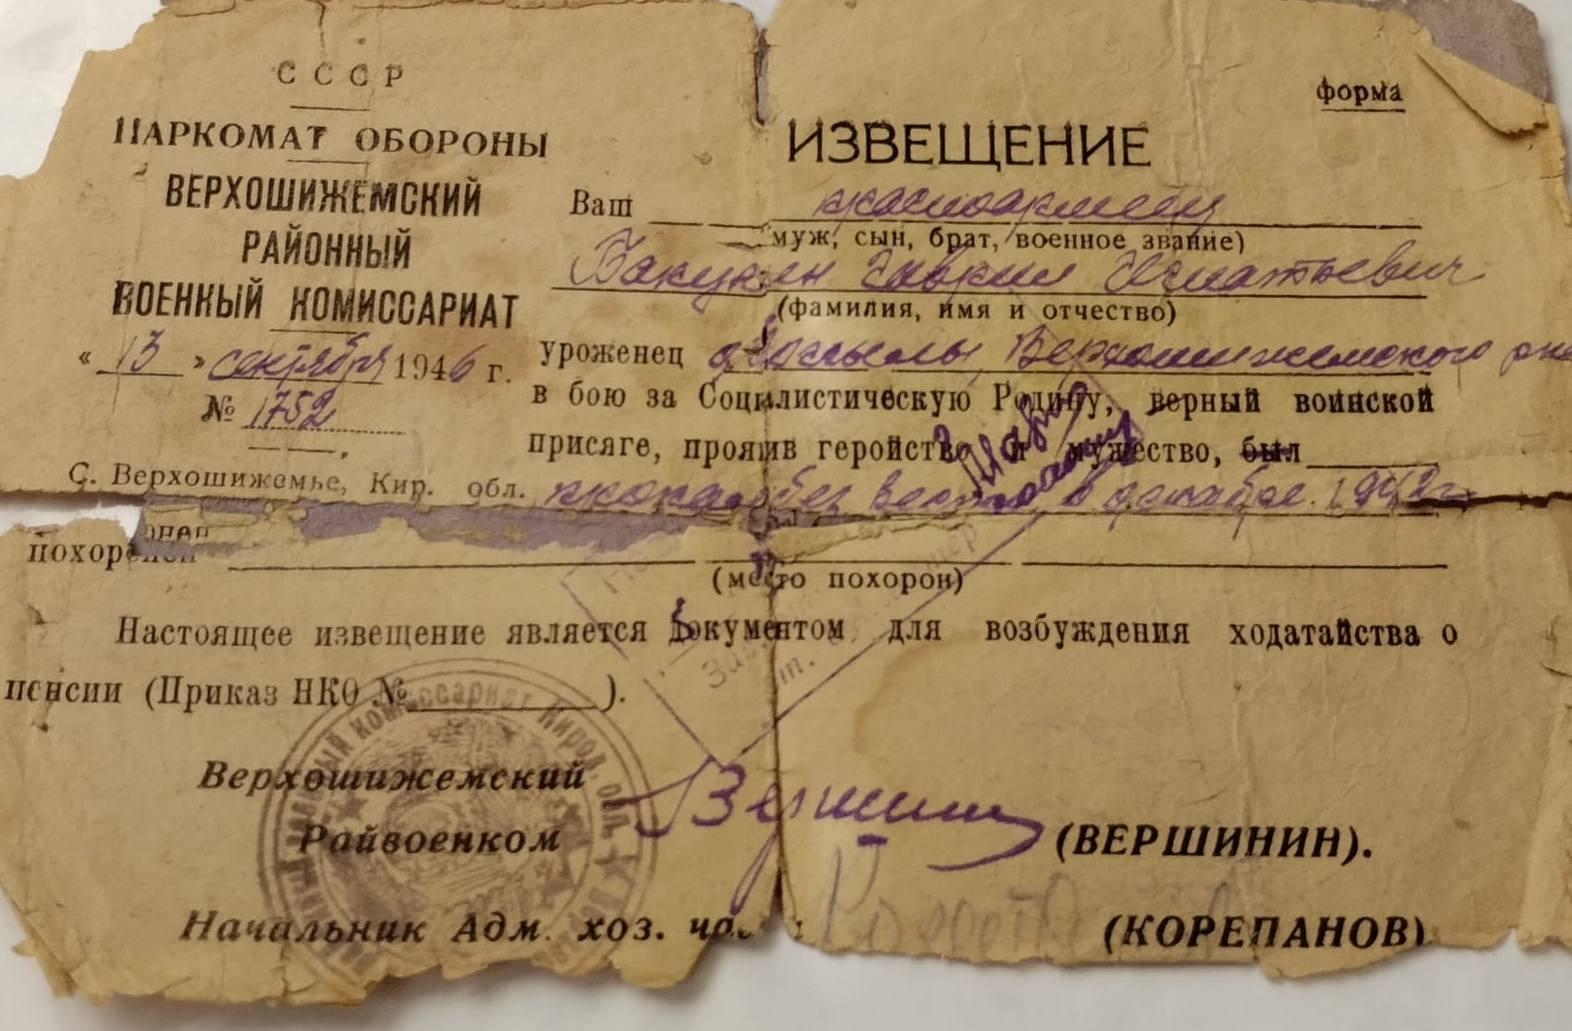 СССР
НАРКОМАТ ОБОРОНЫ
ВЕРХОШИЖЕМСКИЙ
РАЙОННЫЙ
ВОЕННЫЙ КОМИССАРИАТ
« 13 » сентября 1946 г.
№ 1752
С. Верхошижемье, Кир. обл.
форма
ИЗВЕЩЕНИЕ
Ваш красноармеец
муж, сын, брат, военное звание)
Бакулин Гаврил Игнатьевич
(фамилия, имя и отчество)
уроженец Верхошижемского
в бою за Социалистическую Родину, верный воинской
присяге, проявив геройство и мужество, был
пропал без вести в декабре 1942 г
похоронен
(место похорон)
Настоящее извещение является документом для возбуждения ходатайства о
пенсии (Приказ НКО № ).
Верхошижемский
Райвоенком Вершинин (ВЕРШИНИН).
Начальник Адм. хоз. (КОРЕПАНОВ)